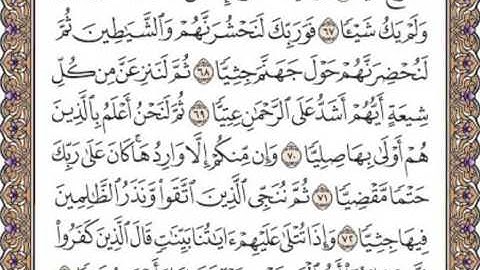 وَلَمْ يَكُ شَيْـًٔا ٦٧ فَوَرَبِّكَ لَنَحْشُرَنَّهُمْ وَٱلشَّيَٰطِينَ ثُمَّ
لَنُحْضِرَنَّهُمْ حَوْلَ جَهَنَّمَ جِثِيًّا ٦٨ ثُمَّ لَنَنزِعَنَّ مِن كُلِّ
شِيعَةٍ أَيُّهُمْ أَشَدُّ عَلَى ٱلرَّحْمَٰنِ عِتِيًّا ٦٩ ثُمَّ لَنَحْنُ أَعْلَمُ بِٱلَّذِينَ
هُمْ أَوْلَىٰ بِهَا صِلِيًّا ٧٠ وَإِن مِّنكُمْ إِلَّا وَارِدُهَا كَانَ عَلَىٰ رَبِّكَ
حَتْمًا مَّقْضِيًّا ٧١ ثُمَّ نُنَجِّى ٱلَّذِينَ ٱتَّقَوا۟ وَّنَذَرُ ٱلظَّٰلِمِينَ
فِيهَا جِثِيًّا ٧٢ وَإِذَا تُتْلَىٰ عَلَيْهِمْ ءَايَٰتُنَا بَيِّنَٰتٍ قَالَ ٱلَّذِينَ كَفَرُوا۟